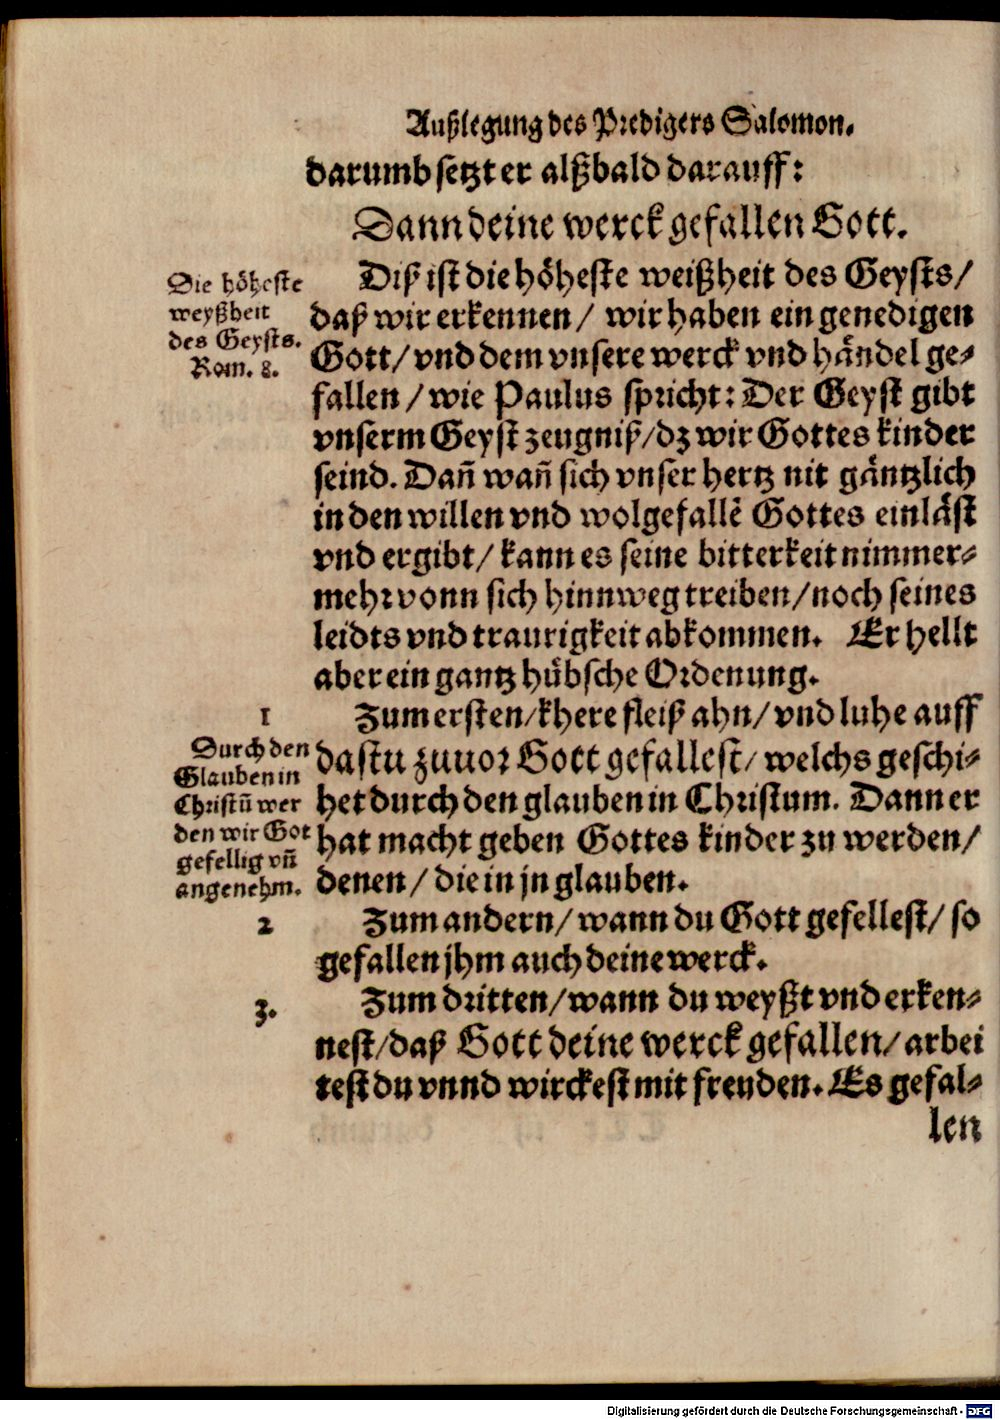 Außlegung des Predigers Salomon.
darumb setzt er alßbald darauff:
Dann deine werck gefallen Gott.
Die höheste
weyßheit
des Geysts.
Rom. 8.
Diß ist die höheste weißheit des Geysts/
daß wir erkennen/ wir haben ein genedigen
Gott/ vnd dem vnsere werck vnd händel ge-
fallen/ wie Paulus spricht: Der Geyst gibt
vnserm Geyst zeugniß/ dz wir Gottes kinder
seind. Dañ wañ sich vnser hertz nit gäntzlich
in den willen vnd wolgefallẽ Gottes einläst
vnd ergibt/ kann es seine bitterkeit nimmer-
mehr vonn sich hinnweg treiben/ noch seines
leidts vnd traurigkeit abkommen. Er hellt
aber ein gantz hübsche Ordenung.
1
Zum ersten/ khere fleiß ahn/ vnd luhe auff
Durch den
Glauben in
Christũ wer
den wir Got
gefellig vñ
angenehm.
dastu zuuor Gott gefallest/ welchs geschi-
het durch den glauben in Christum. Dann er
hat macht geben Gottes kinder zu werden/
denen/ die in jn glauben.
2
Zum andern/ wann du Gott gefellest/ so
gefallen jhm auch deine werck.
3.
Zum dritten/ wann du weyßt vnd erken-
nest/ daß Gott deine werck gefallen/ arbei
test du vnnd wirckest mit freuden. Es gefal-
len
Digitalisierung gefördert durch die Deutsche Forschungsgemeinschaft - DFG